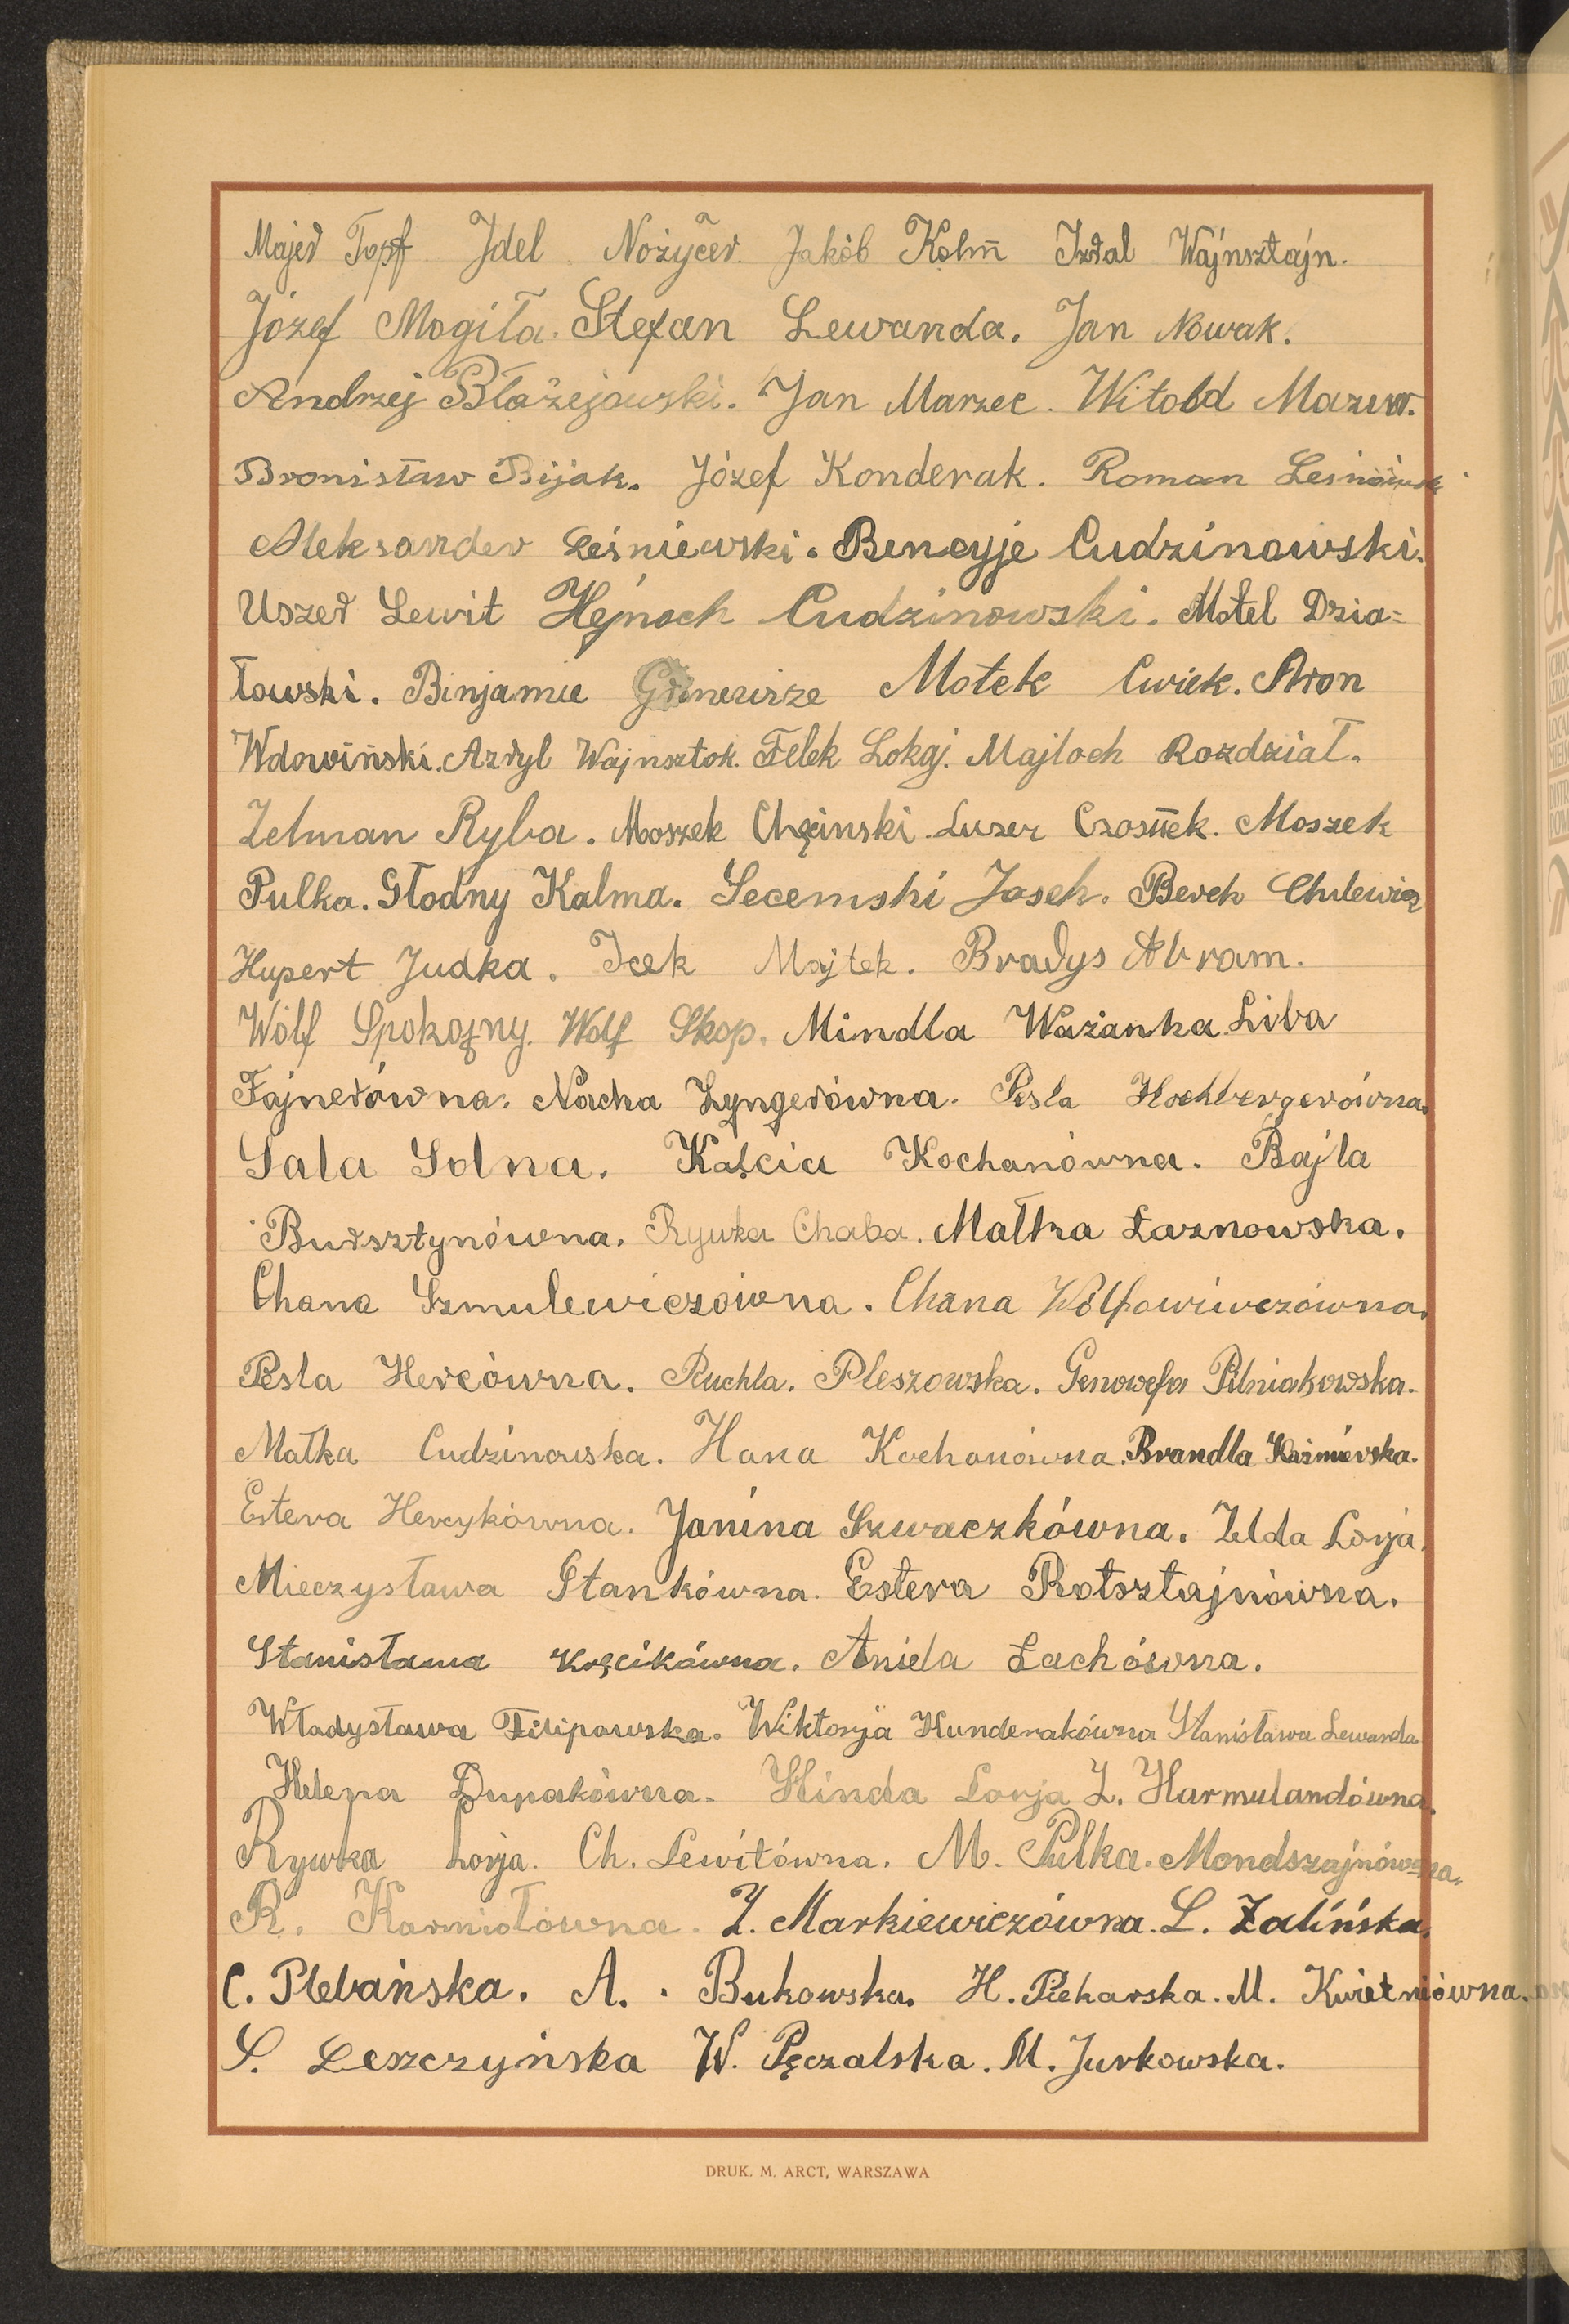 Majer Topf Jdel Nożycer. Jakób Kolm Izral Wajnsztajn.
Józef Mogiła. Stefan Lewanda. Jan Nowak.
Andrzej Błażejowski. Jan Marzec. Witold Mazur.
Bronisław Bijak. Józef Konderak. Roman
Aleksander Leśniewski. Bencyje Cudzinowski.
Uszer Lewit Hejnoch Cudzinowski. Motel Dzia=
łowski. Binjamie Motek Cwiek. Aron
Wdowiński. Azryl Wajnsztok. Felek Lokaj. Majloch Rozdział.
Zelman Ryba. Moszek Chęcinski. Luzer Czosnek. Moszek
Pulka. Głodny Kalma. Secemski Josek. Berek Chilewicz
Hupert Judka. Icek Majtek. Bradys Abram.
Wolf Spokojny. Wolf Skop. Mindla Ważanka. Liba
Fajnerówna. Nacha Zyngerówna. Pesla Hochbergerówna.
Sala Solna. Kajcia Kochanówna. Bajla
Bursztynówna. Rywka Chaba. Małka Łaznowska.
Chana Szmulewiczówna. Chana Wolfowiwczówna.
Pesla Hercówna. Ruchla. Pleszowska. Genowefa Pilniakowska.
Małka Cudzinowska. Hana Kochanówna. Brandla Kaźmierska.
Estera Hercykówna. Janina Szwaczkówna. Zelda Lorja.
Mieczysława Stankówna. Estera Rotsztajnówna.
Stanisława Kręcikówna. Aniela Łachówna.
Władysława Filipowska. Wiktorja Kunderakówna Stanisława Lewanda
Helena Dupakówna. Hinda Lorja Z. Harmulandówna.
Rywka Lorja. Ch. Lewitówna. M. Pulka. Mondszajnówna.
R. Karmiołówna. Z. Markiewiczówna. L. Zalińska.
C. Plebańska. A. Bukowska. H. Piekarska. M. Kwietniówna.
S. Leszczyńska W. Pęczalska. M. Jurkowska.
DRUK. M. ARCT, WARSZAWA